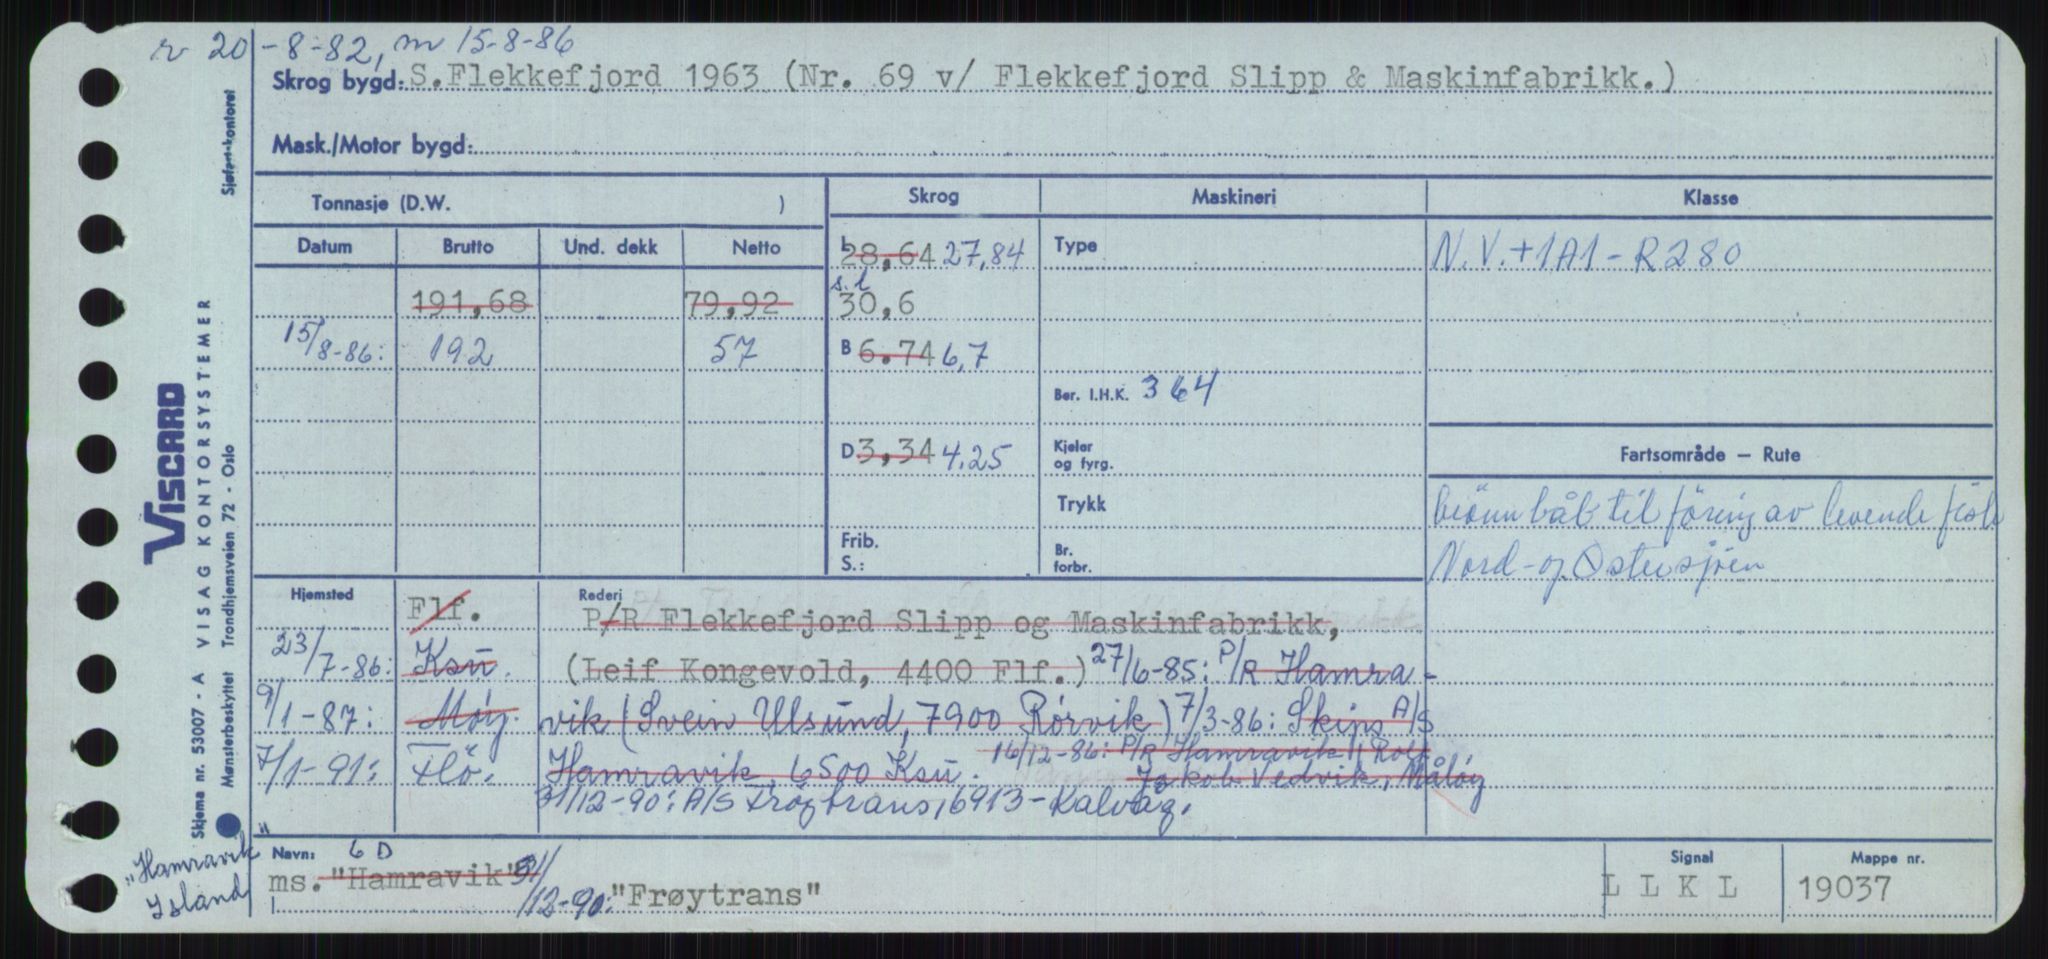 r 20-8-82, m 15-8-86
Skrog bygd: S.Flekkefjord 1963 (Nr. 69 v/ Flekkefjord Slipp & Maskinfabrikk.)
Mask./Motor bygd:
Tonnasje (D.W. )
Skrog
Maskineri
Klasse
Datum Brutto Und. dekk Netto
L 28,64 27,84
Type
N.V. +1A1 - R280
191,68 79,92
s.l
30,6
15/8-86: 192 57
B 6.74 6,7
Ber. I.H.K. 364
D 3,34 4.25
Kjeler
og fyrg.
Fartsområde — Rute
Trykk
brönnbåt til föring av levende fisk
Frib.
S.:
Br.
forbr.
Nord- og Östersjöen
Hjemsted Flf.
Rederi
P/R Flekkefjord Slipp og Maskinfabrikk,
23/7-86: Ksu.
(Leif Kongevold, 4400 Flf.) 27/6-85: P/R Hamra-
9/1-87: Måy.
vik (Svein Ulsund, 7900 Rørvik) 7/3-86: Skips A/S
16/12-86: P/R Hamravik (Rolf
7/1-91: Flö.
Hamravik, 6500 Ksu. Jakob Vedvik, Måløy
31/12-90: A/S Frøytrans, 6913-Kalvåg.
Navn: 6 D
ms. "Hamravik" 31/12-90: "Frøytrans"
Signal
L L K L
Mappe nr.
19037
"Hamravik"
Island
Sjøfart-kontoret
VISCARD
VISAG KONTORSYSTEMER
Skjema nr. 53007 - A
Mønsterbeskyttet Trondhjemsveien 72 - Oslo